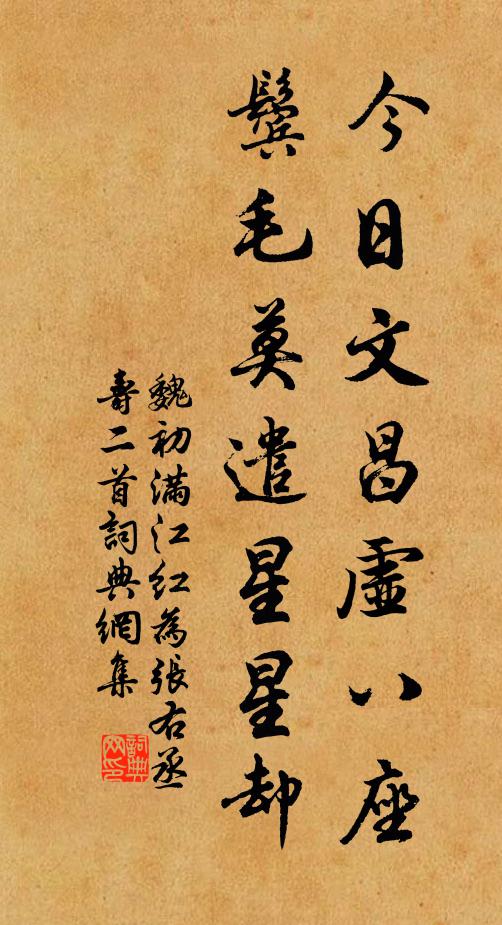 今日文昌虛八座
鬓毛莫遣星星却
魏初滿江紅為張右丞
壽二首詞典網集
詞典网印